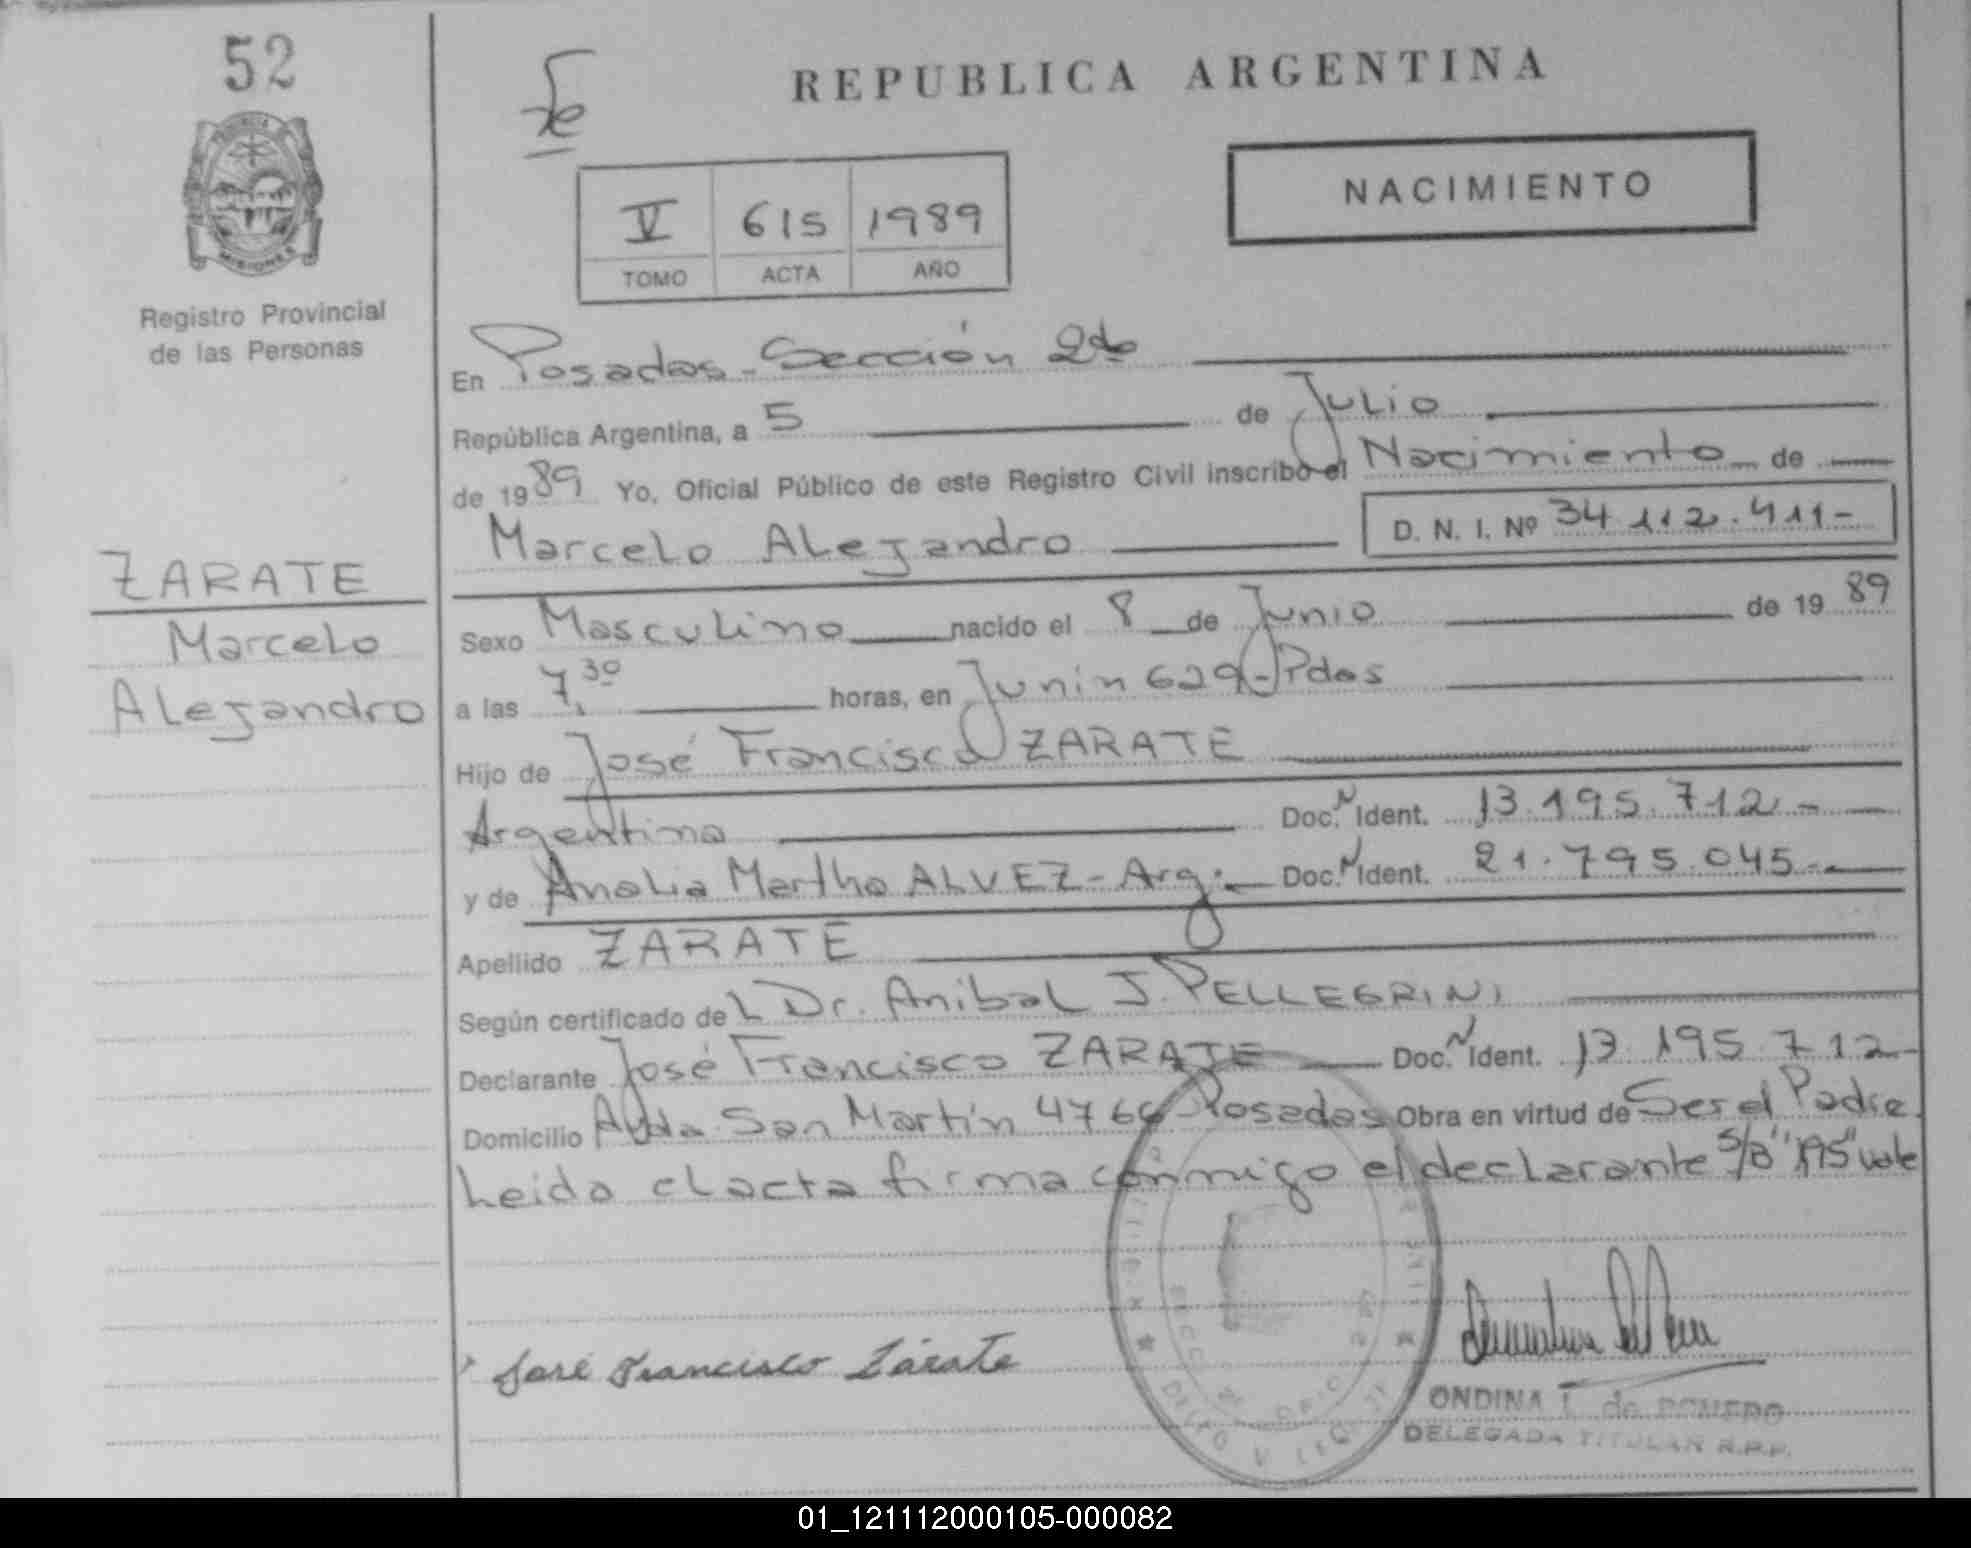 52
REPUBLICA ARGENTINA
NACIMIENTO
V 615 1989
TOMO ACTA AÑO
MISIONES
Registro Provincial
de las Personas
En Posadas - Sección 2da
República Argentina, a 5 de Julio
de 1989 Yo, Oficial Público de este Registro Civil inscribo el Nacimiento de
Marcelo Alejandro D. N. I. Nº 34.112.411-
ZARATE
Marcelo
Alejandro
Sexo Masculino nacido el 8 de Junio de 1989
a las 7,30 horas, en Junin 629 - Pdas
Hijo de José Francisco ZARATE
Argentina Doc. N Ident. 13.195.712-
y de Analia Martha ALVEZ - Arg. Doc. N Ident. 21.795.045-
Apellido ZARATE
Según certificado del Dr. Anibal J. PELLEGRINI
Declarante José Francisco ZARATE Doc. N Ident. 13.195.712-
Domicilio Avda. San Martín 4766 - Posadas Obra en virtud de Ser el Padre.
Leida el acta firma conmigo el declarante S/B "195" vale
José Francisco Zárate
ONDINA T. de ROMERO
DELEGADA TITULAR R.P.P.
01_121112000105-000082